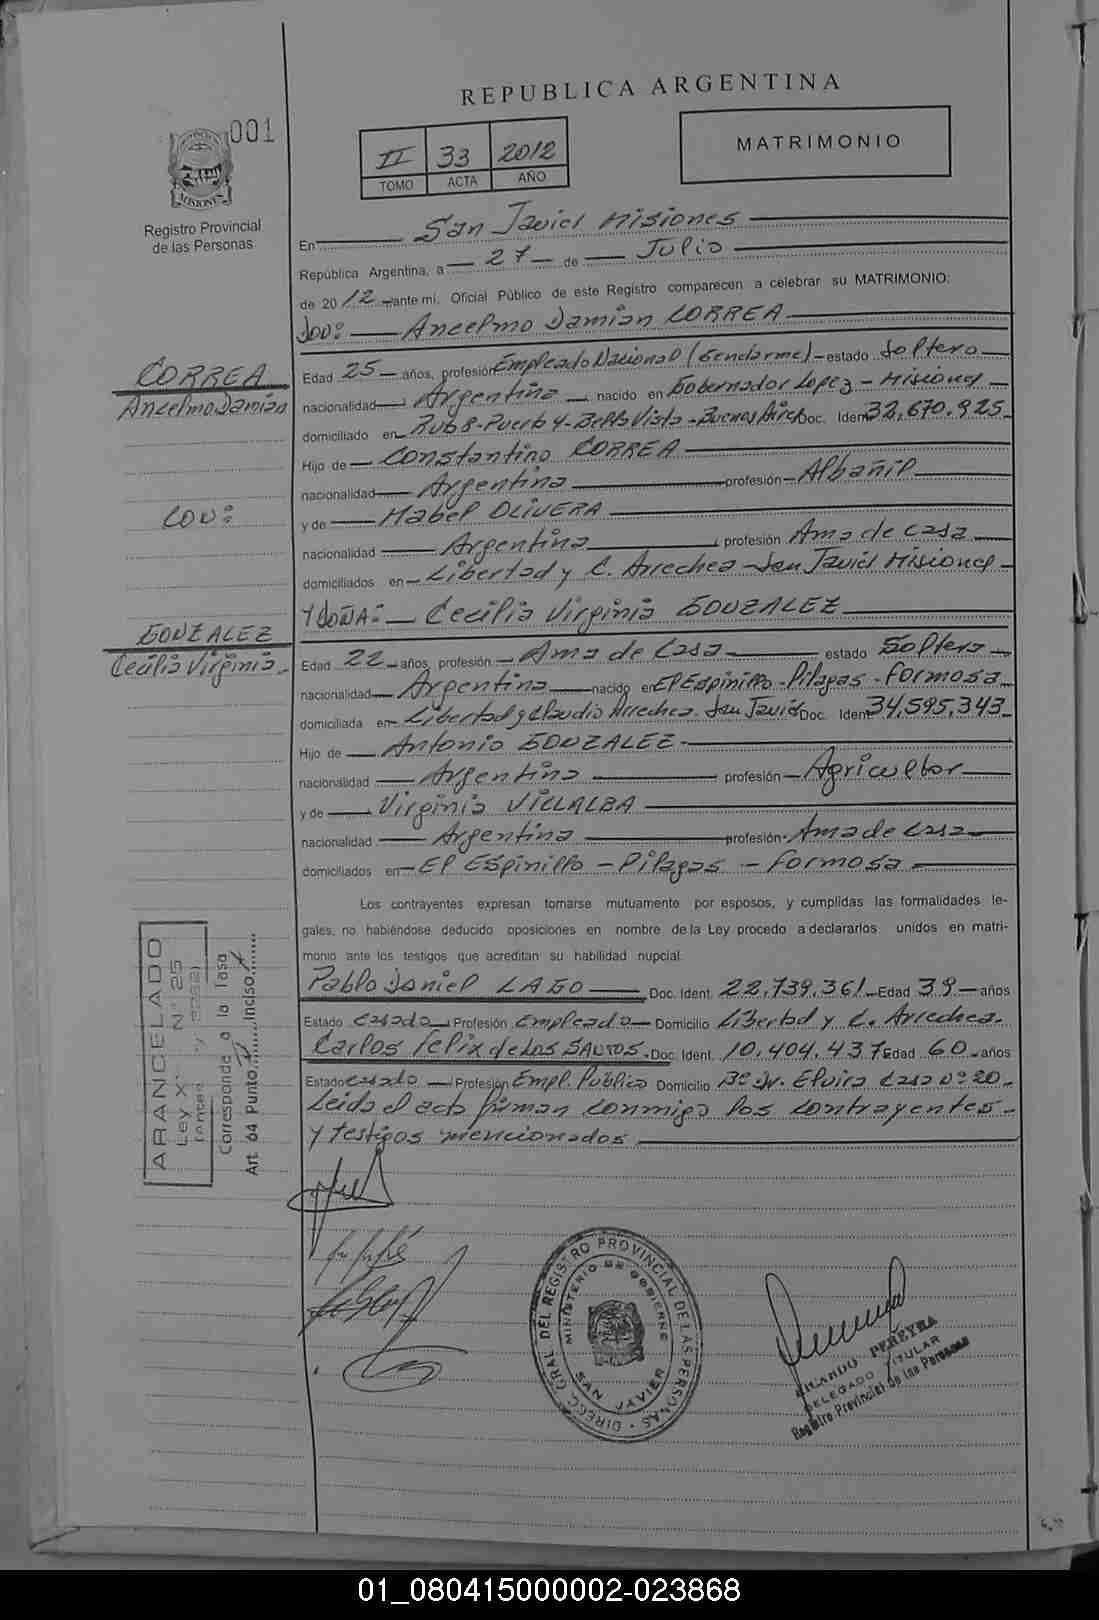 REPUBLICA ARGENTINA
001
PROVINCIA
MISIONES
Registro Provincial
de las Personas
II 33 2012
TOMO ACTA AÑO
MATRIMONIO
En San Javier Misiones
República Argentina, a 27 de Julio
de 2012 ante mi, Oficial Público de este Registro comparecen a celebrar su MATRIMONIO:
DON: Ancelmo Damian CORREA
CORREA
Ancelmo Damian
CON:
GONZALEZ
Cecilia Virginia.
Edad 25 años, profesión Empleado Nacional (Gendarme) estado Soltero
nacionalidad Argentina nacido en Gobernador Lopez - Misiones
domiciliado en Rub 8-Puerto 4-Bella Vista-Buenos Aires Doc. Ident 32.670.925
Hijo de Constantino CORREA
nacionalidad Argentina profesión Albañil
y de Mabel OLIVERA
nacionalidad Argentina profesión Ama de casa
domiciliados en Libertad y C. Arrechea - San Javier Misiones
Y DOÑA: Cecilia Virginia GONZALEZ
Edad 22 años, profesión Ama de casa estado Soltera
nacionalidad Argentina nacido en El Espinillo - Pilagas - Formosa
domiciliada en Libertad y Claudio Arrechea. San Javier Doc. Ident 34.595.343
Hijo de Antonio GONZALEZ
nacionalidad Argentina profesión Agricultor
y de Virginia VILLALBA
nacionalidad Argentina profesión Ama de casa
domiciliados en El Espinillo - Pilagas - Formosa
Los contrayentes expresan tomarse mutuamente por esposos, y cumplidas las formalidades le-
gales, no habiéndose deducido oposiciones en nombre de la Ley procedo a declararlos unidos en matri-
monio ante los testigos que acreditan su habilidad nupcial.
Pablo Daniel LAGO Doc. Ident. 22.739.361 Edad 39 años
Estado Casado Profesión Empleado Domicilio Libertad y C. Arrechea.
Carlos Felix de Los SANTOS. Doc. Ident. 10.404.437 Edad 60 años
Estado casado Profesión Empl. Público Domicilio Bº Sr. Elvira Casa nº 20
Leida el acta firman conmigo los contrayentes
y testigos mencionados
ARANCELADO
Ley X N° 25
(Antes
Corresponde a la tasa
Art. 64 Punto Inciso
DIRECC. GRAL. DEL REGISTRO PROVINCIAL DE LAS PERSONAS
MINISTERIO DE GOBIERNO
SAN JAVIER
RICARDO PEREYRA
DELEGADO TITULAR
Registro Provincial de las Personas
01_080415000002-023868